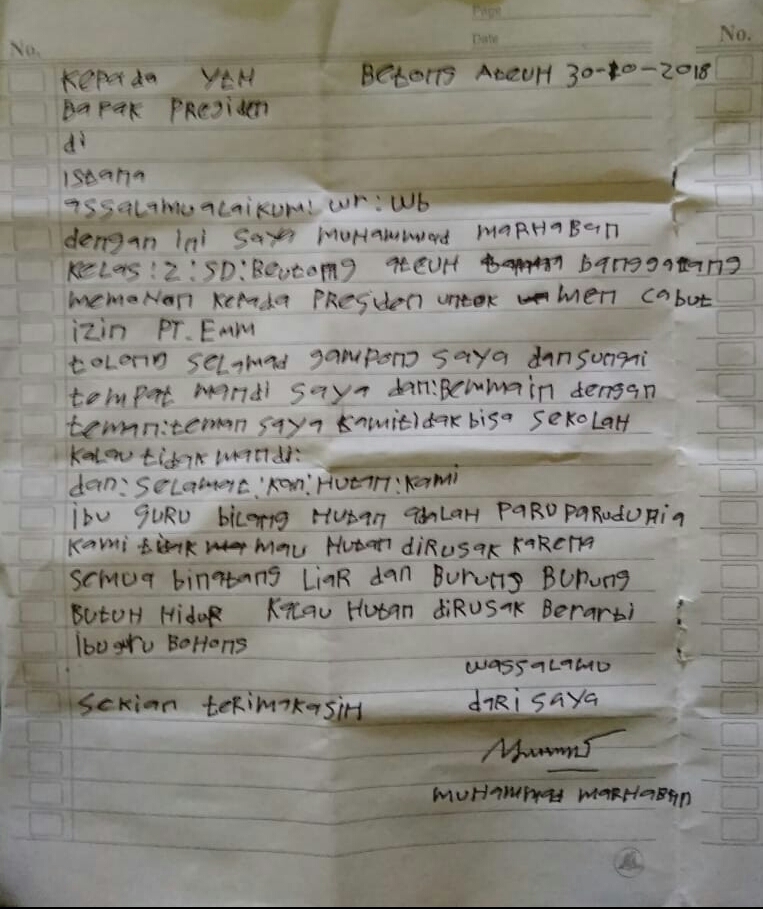 Page
No. Date No.
KePada YtH Betong AteuH 30-10-2018
BaPak PResiden
di
istana
assalamualaikum: wr: wb
dengan ini saya MuHammad MaRHaBan
KeLas: 2: SD: Beutong ateuH banggalang
memoHon kepada PResiden untuk men cabut
izin PT. Emm
toLong seLamad gampong saya dan sungai
tempat mandi saya dan: Bermain dengan
teman: teman saya kami tidak bisa sekoLaH
kaLau tidak mandi:
dan: seLamat: kan: Hutan: kami
ibu guRu bilang Hutan adalaH PaRu PaRu dunia
kami tidak mau Hutan diRusak kaRena
semua binatang LiaR dan BuRung BuRung
ButuH HiduP KaLau Hutan diRusak BeraRti
ibu guru BoHong
wassaLamu
sekian teRimakasiH daRi saya
muHammad maRHaBan